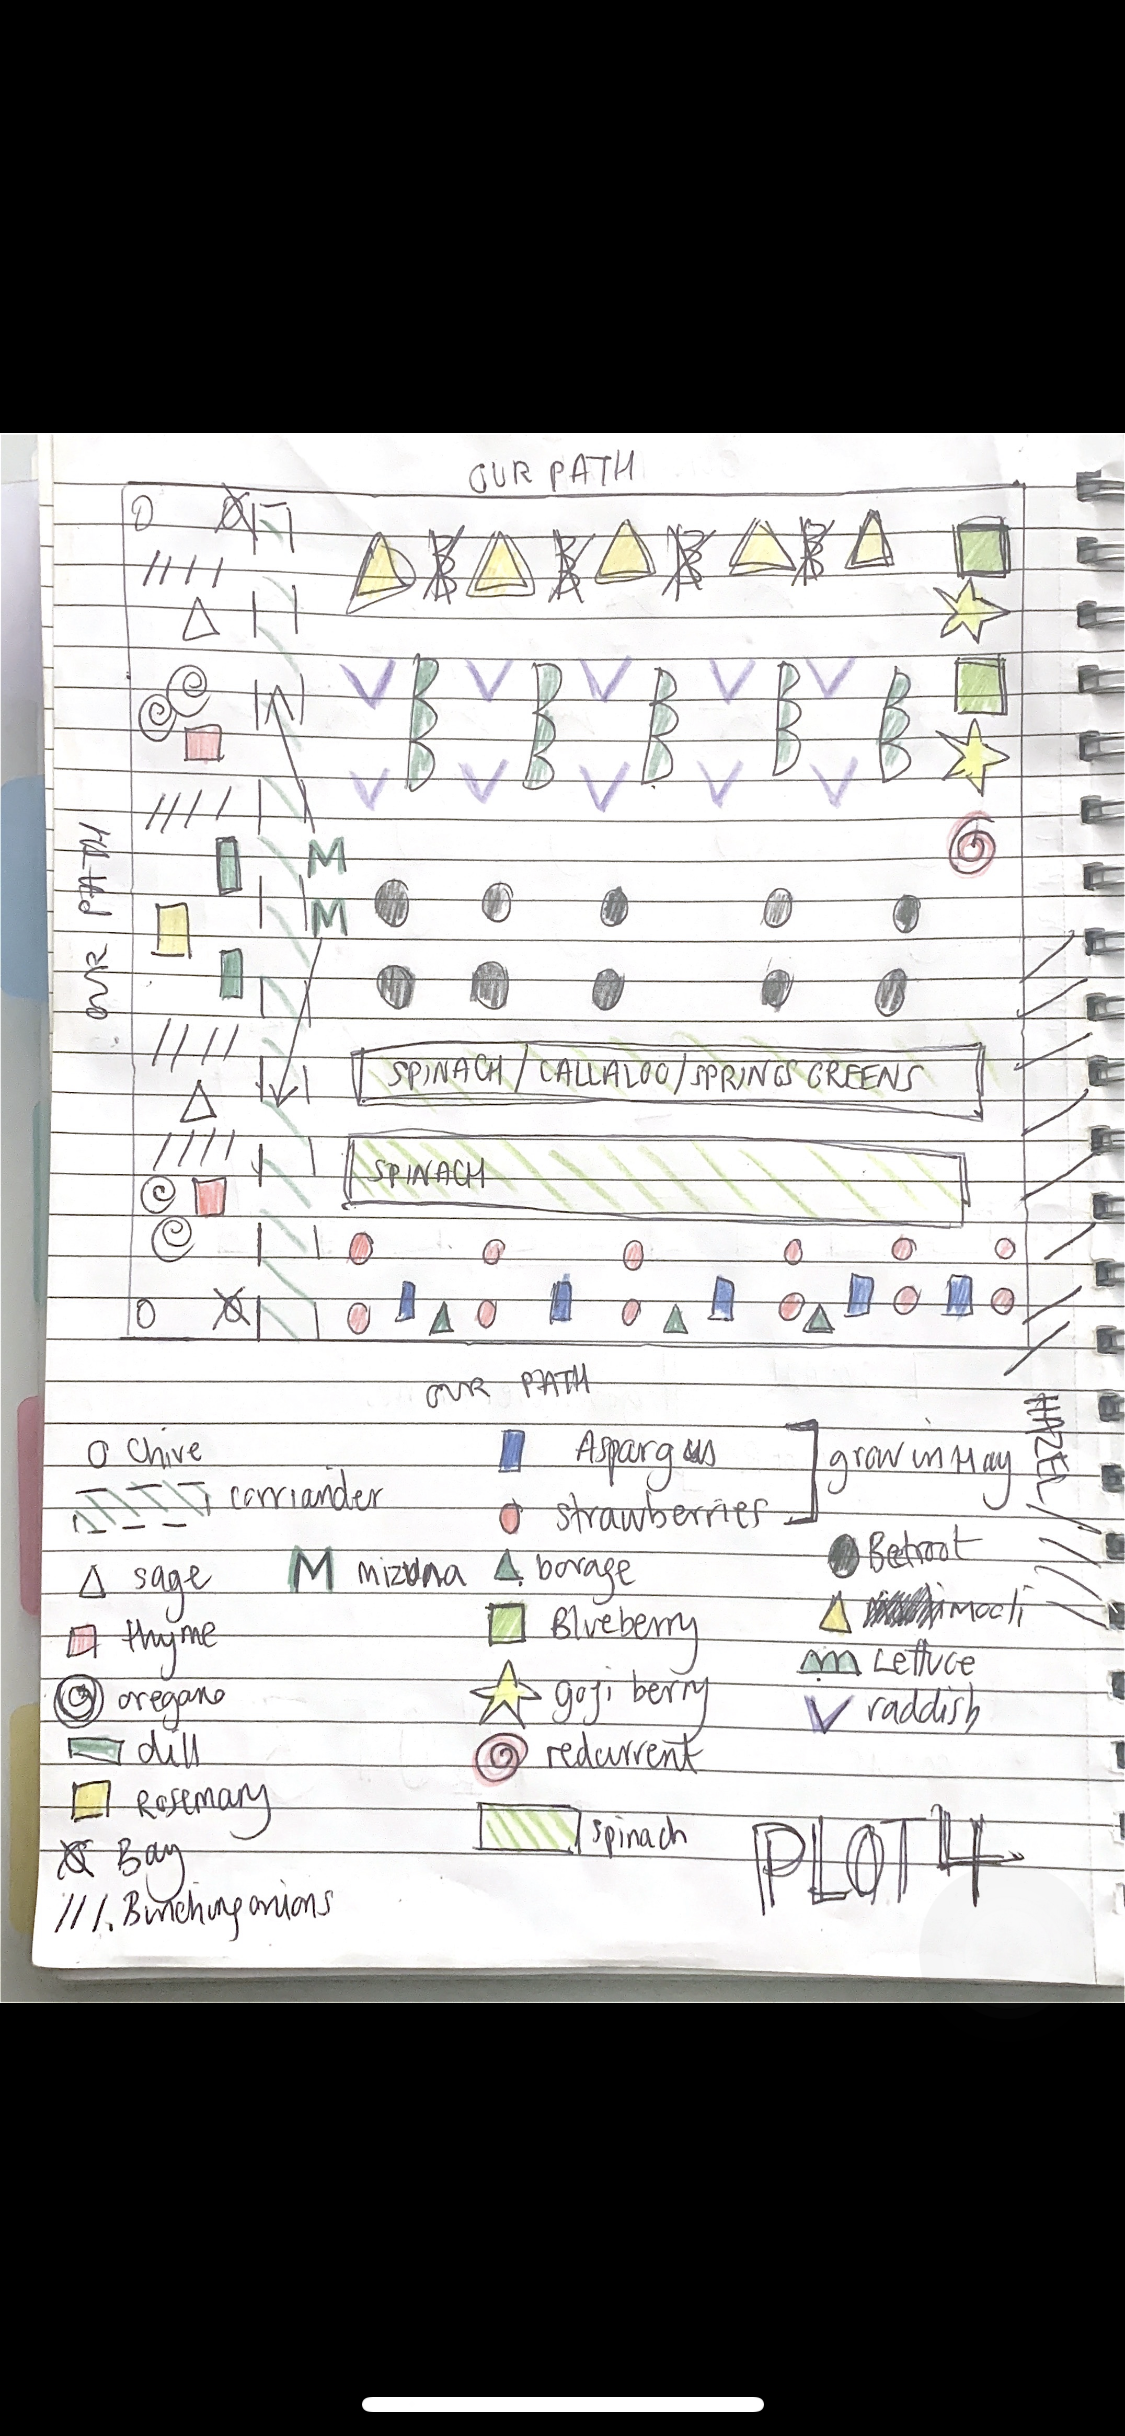 OUR PATH
OUR PATH
M
M
SPINACH / CALLALOO / SPRINGS GREENS
SPINACH
OUR PATH
HAZEL
O Chive
corriander
sage
thyme
oregano
dill
Rosemary
Bay
///. Bunching onions
M mizuna
Aspargus
strawberries
grow in May
borage
Blueberry
goji berry
redcurrent
spinach
Beetroot
mooli
Lettuce
raddish
PLOT 4